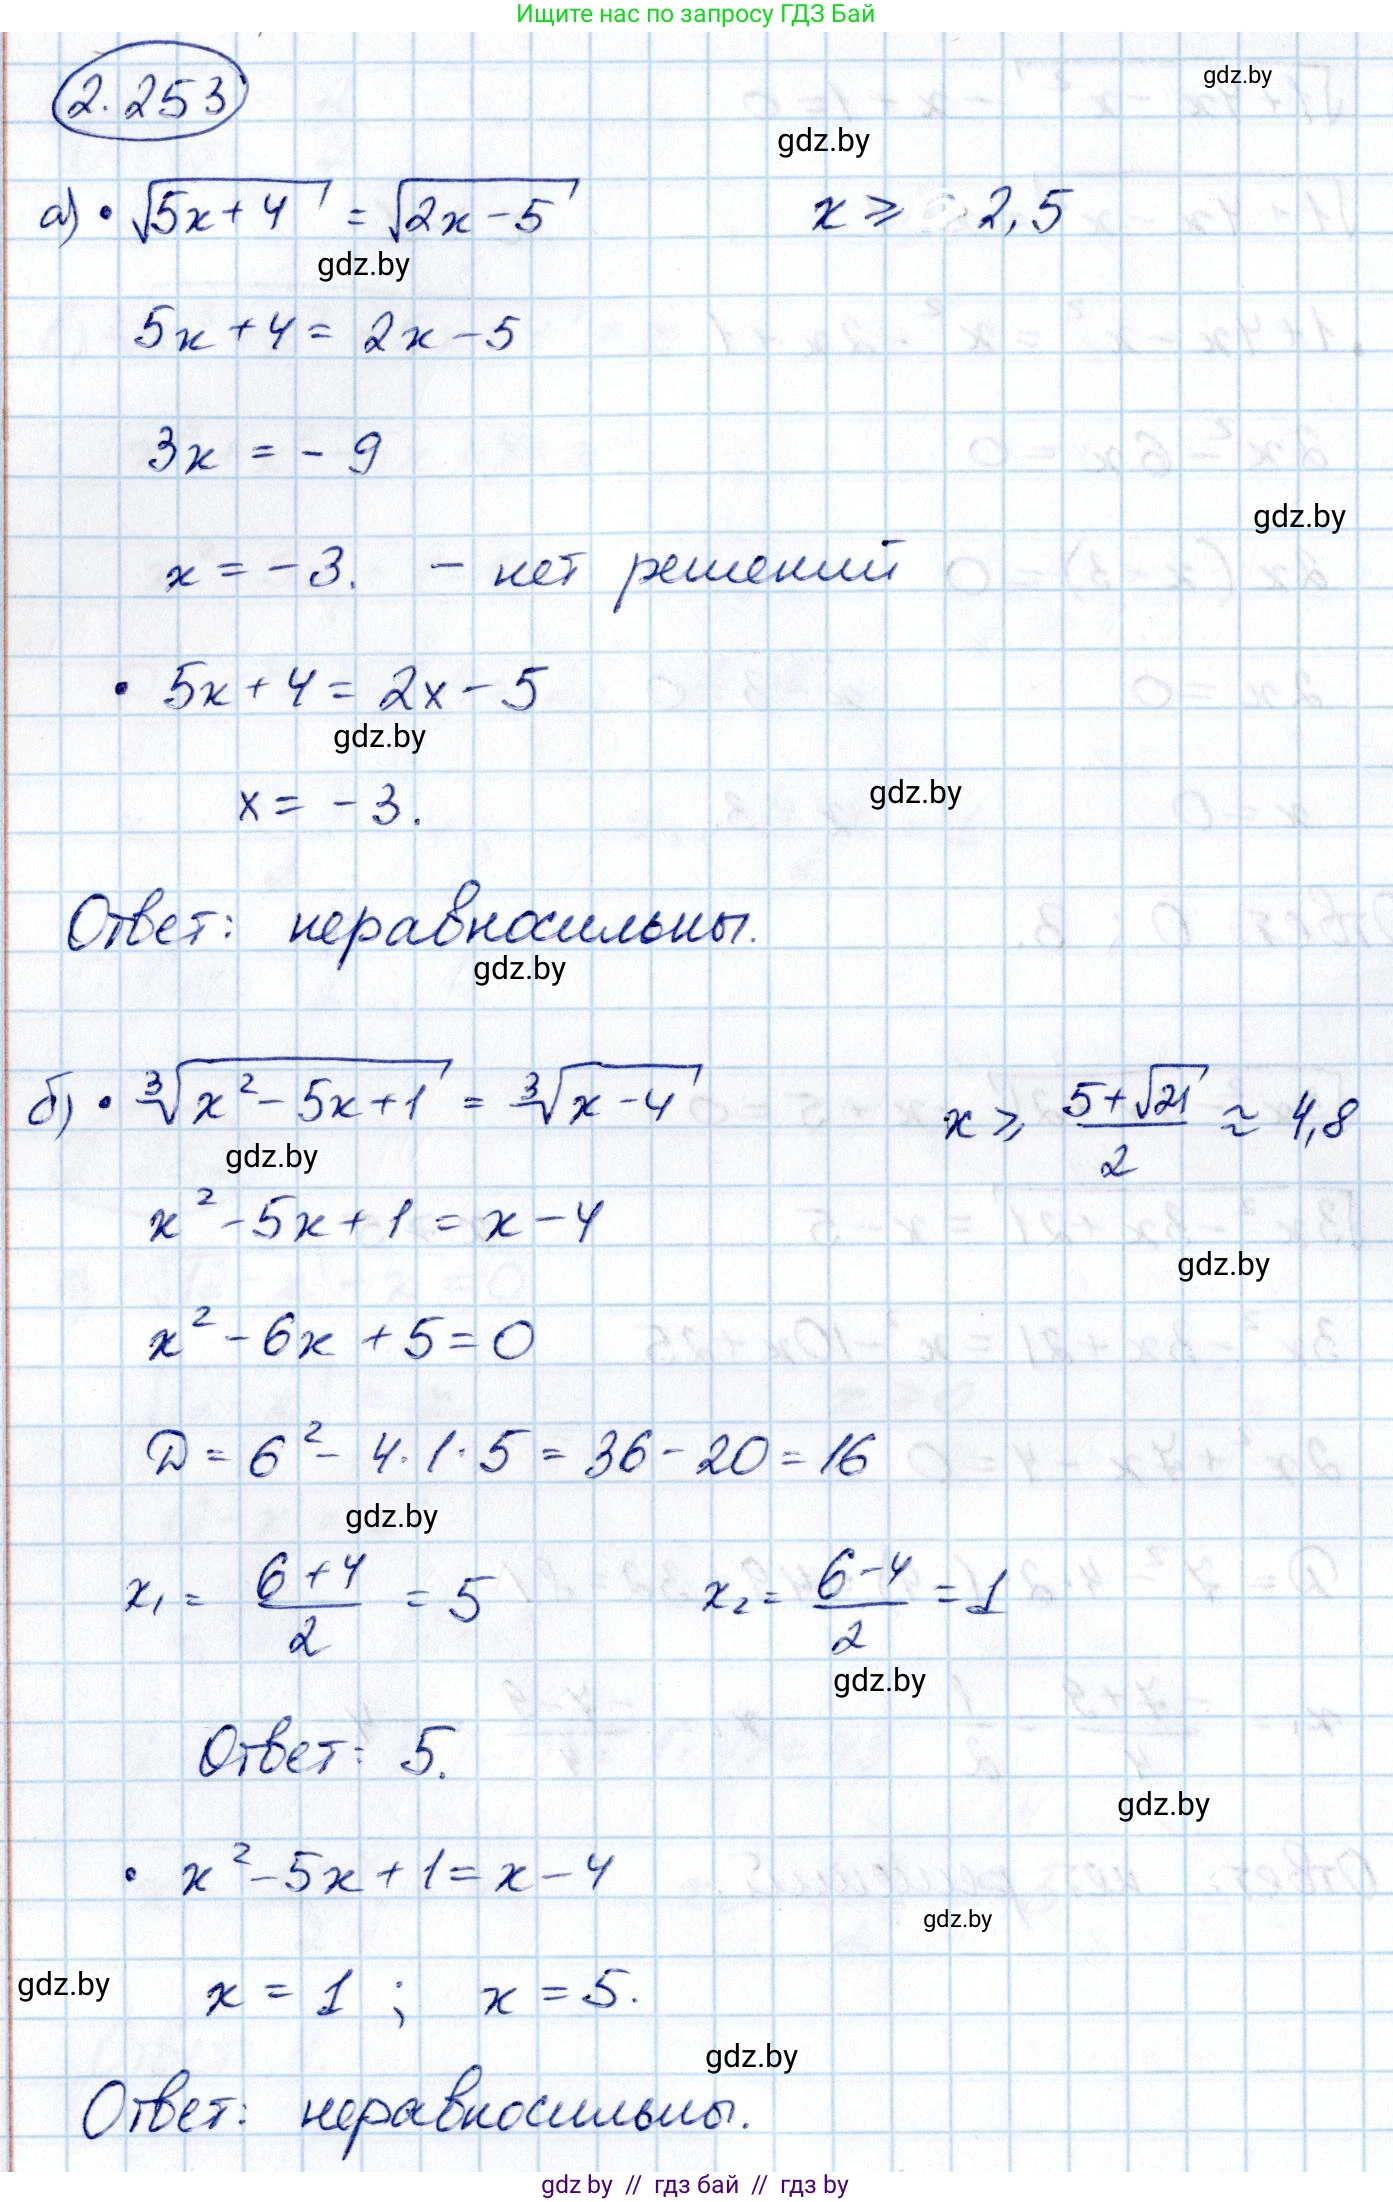 Ищите нас по запросу ГДЗ Бай
2.253
gdz.by
gdz.by
а) • √(5x+4) = √(2x−5) x ⩾ 2,5
gdz.by
5x+4 = 2x−5
3x = −9
gdz.by
x = −3. – нет решений
• 5x+4 = 2x−5
gdz.by
x = −3.
gdz.by
Ответ: неравносильны.
gdz.by
б) • ∛(x²−5x+1) = ∛(x−4) x ⩾ (5+√21)/2 ≈ 4,8
gdz.by
x²−5x+1 = x−4
gdz.by
x²−6x+5=0
D = 6²−4·1·5 = 36−20 = 16
gdz.by
x₁ = (6+4)/2 = 5 x₂ = (6−4)/2 = 1
gdz.by
Ответ: 5.
gdz.by
• x²−5x+1=x−4
gdz.by
gdz.by
x = 1 ; x = 5.
gdz.by
Ответ: неравносильны.
gdz by // гдз бай // гдз by